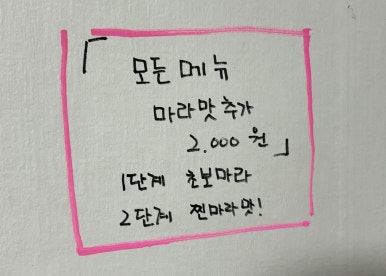 「모든메뉴
마라맛추가
2.000원」
1단계 초보마라
2단계 찐마라맛!